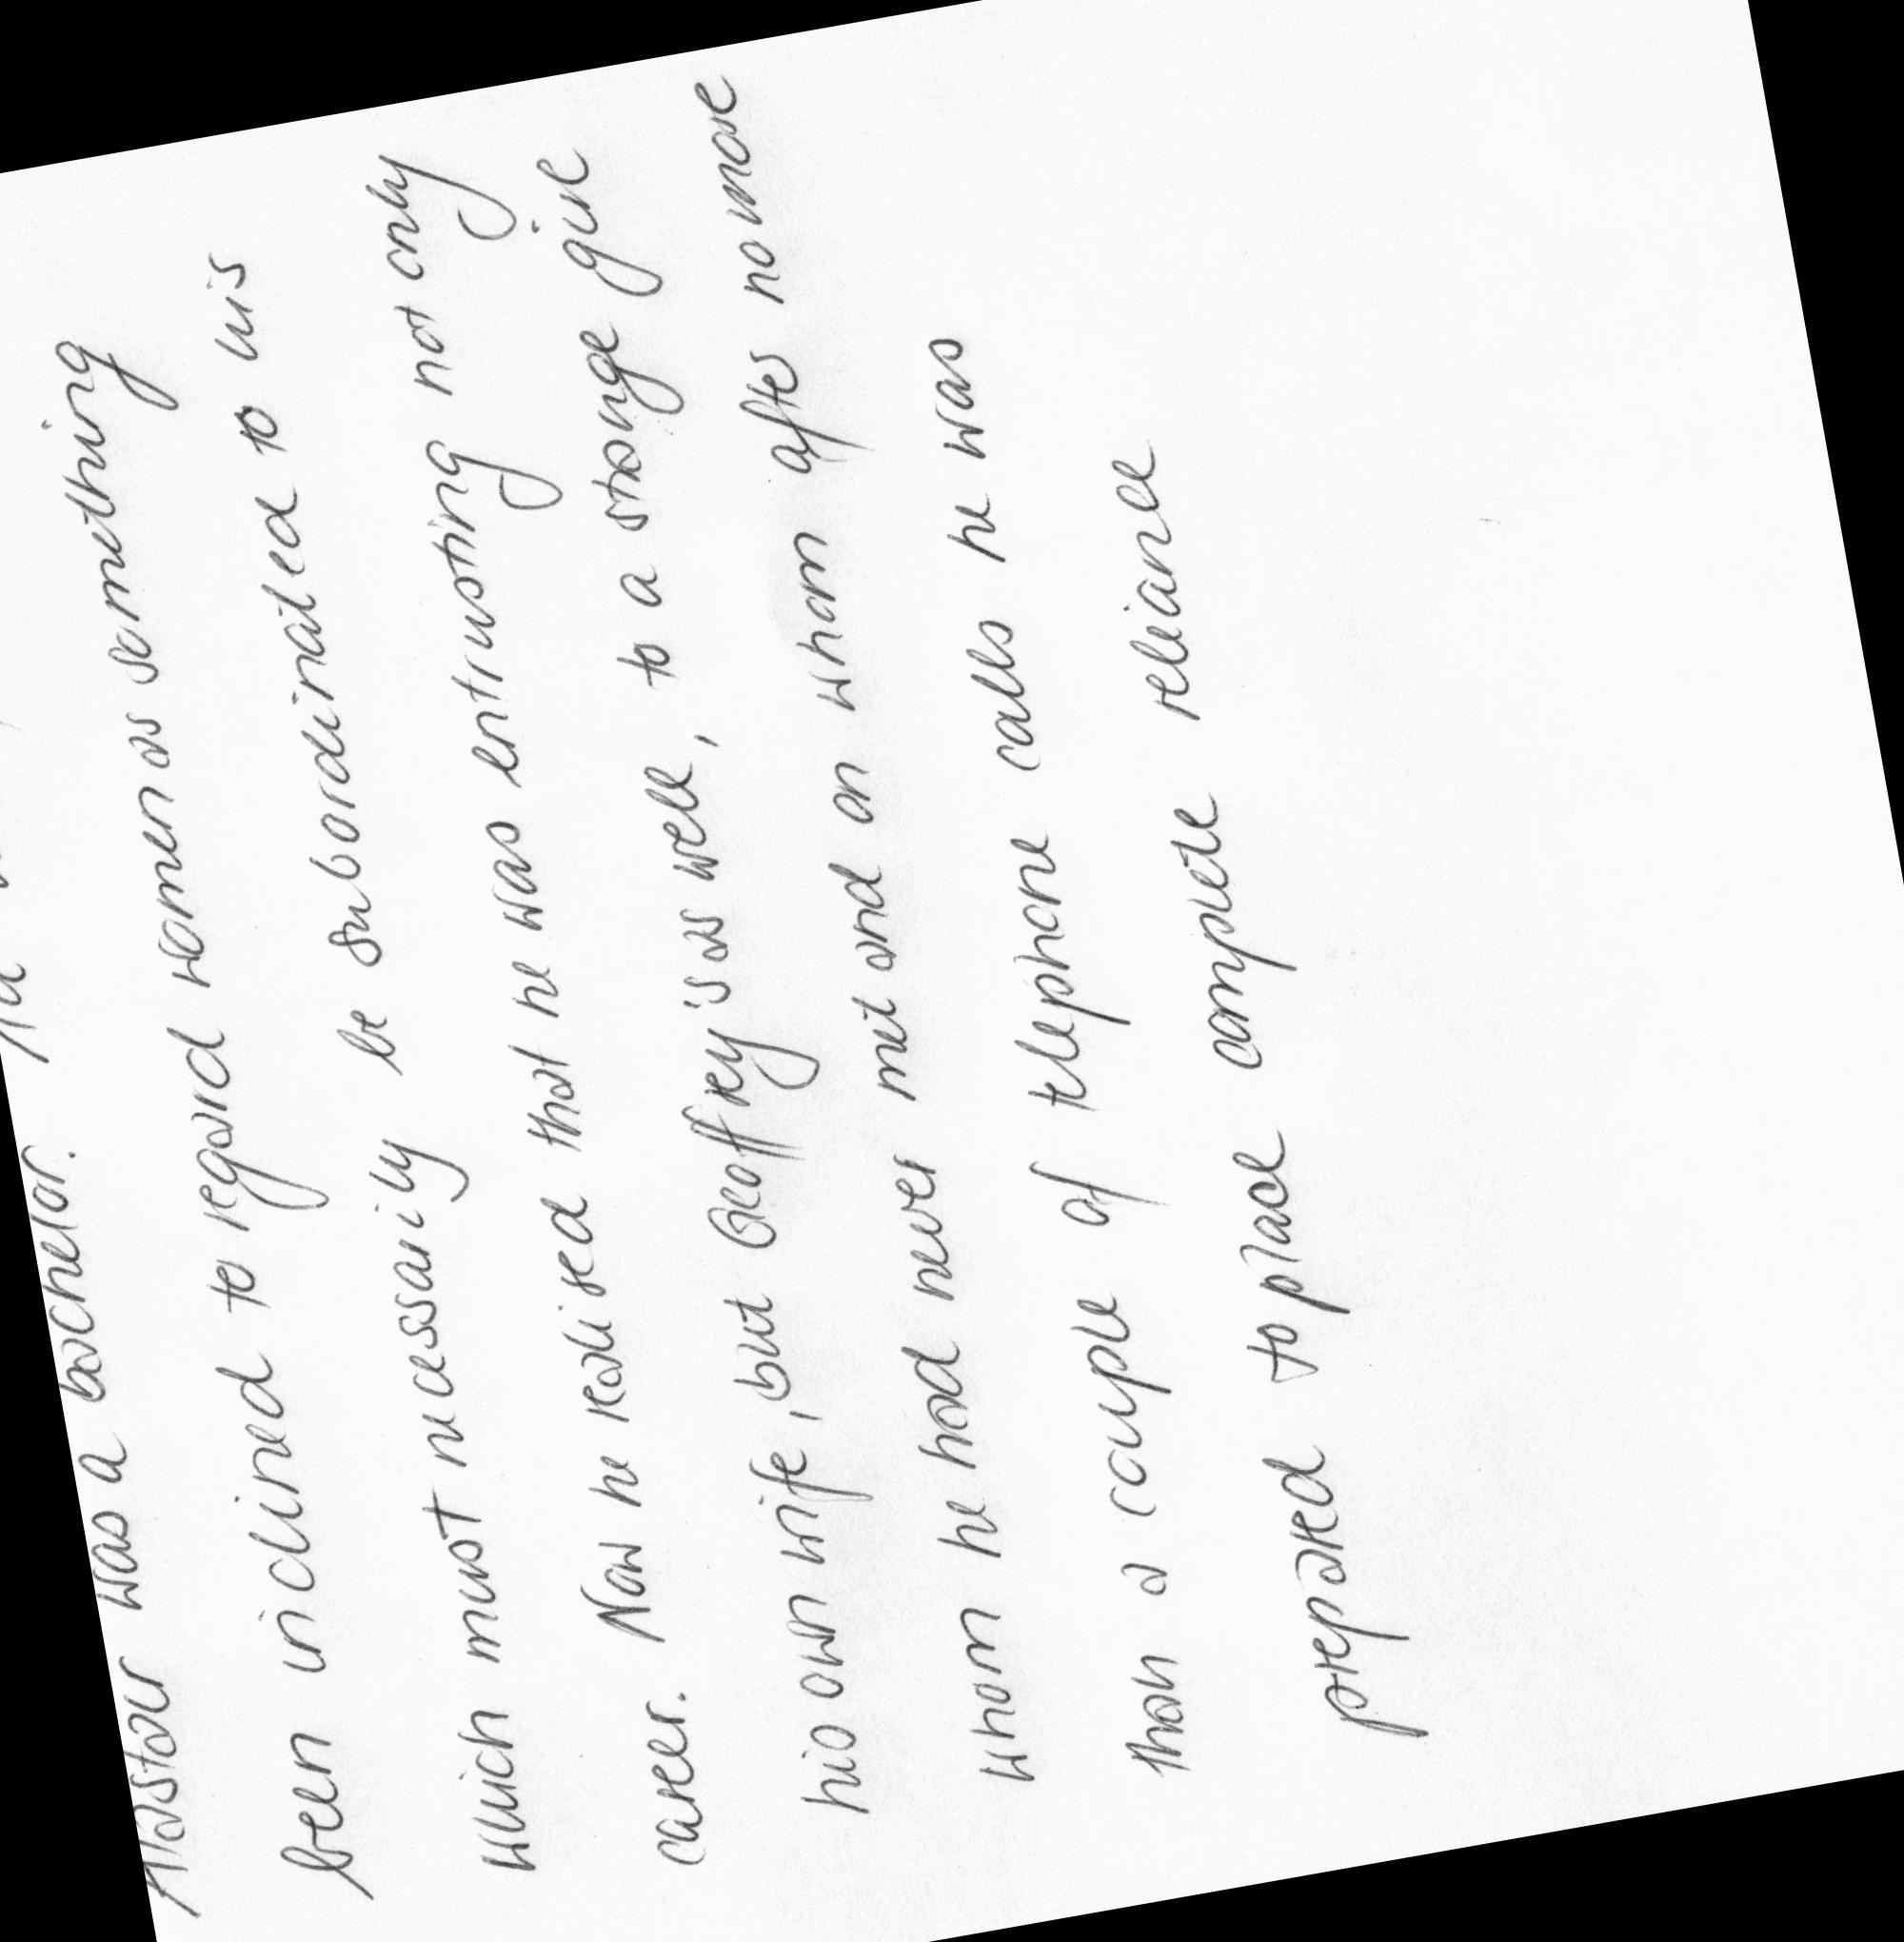 Alastair was a bachelor.
been inclined to regard women as something
which must necessarily be subordinated to his
career. Now he realised that he was entrusting not only
his own wife, but Geoffrey's as well, to a strange girl
whom he had never met and on whom after no more
than a couple of telephone calls he was
prepared to place complete reliance